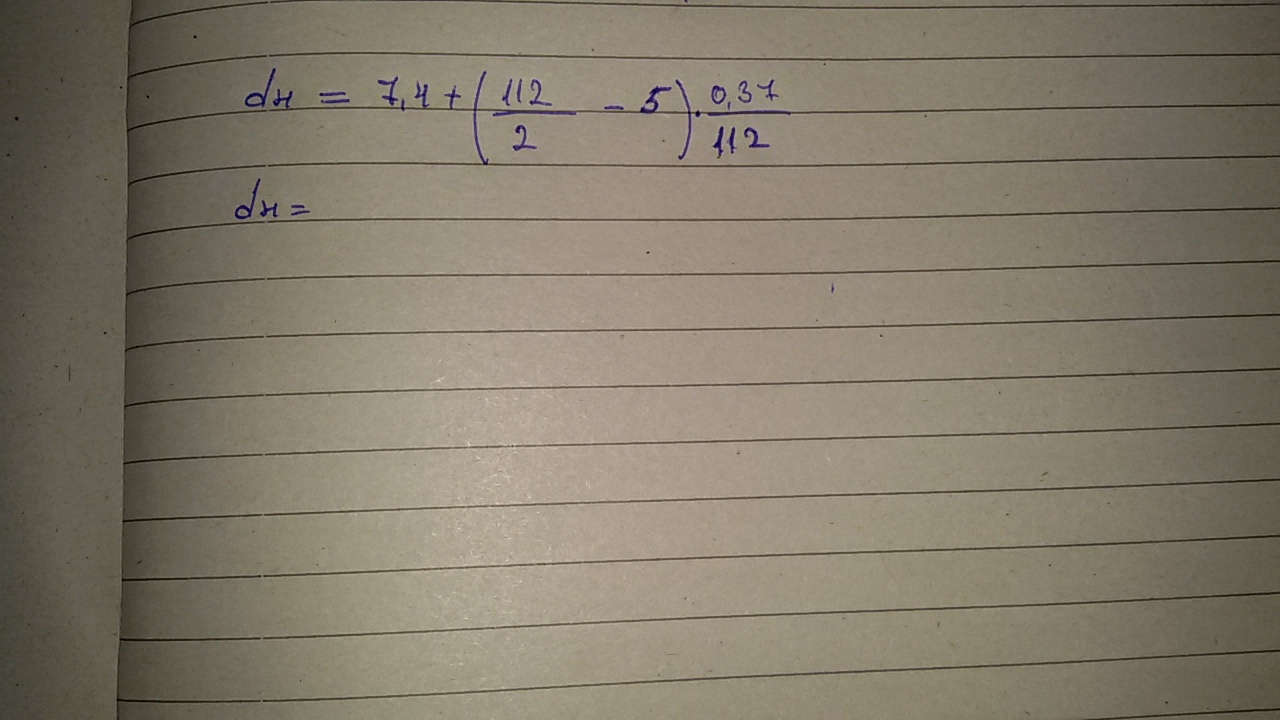 dн = 7,4 + (112/2 - 5) · 0,37/112
dн =